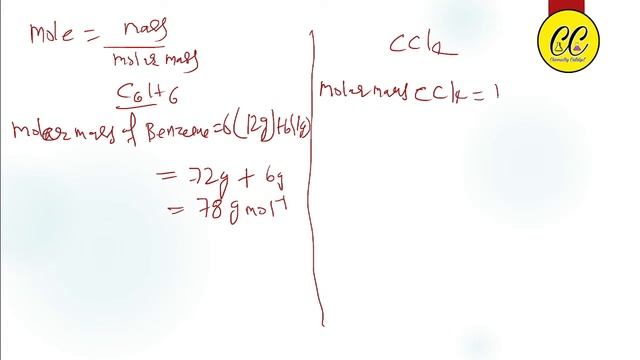 mole = mass
molar mass
C6H6
molar mass of Benzene = 6(12g)+6(1g)
= 72g + 6g
= 78 g mol-1
CCl4
molar mass CCl4 = 1
CC
Chemistry Catalyst